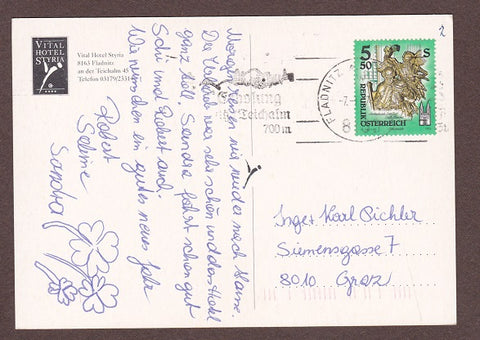 VITAL
HOTEL
STYRIA
Vital Hotel Styria
8163 Fladnitz
an der Teichalm 45
Telefon 03179/23314
Morgen fahren wir wieder nach Hause.
Der Urlaub war sehr schön und das Hotel
ganz toll. Sandra fährt schon gut
Schi und Robert auch.
Wir wünschen ein gutes neues Jahr
Robert
Sabine
Sandra
Erholung
Teichalm
700 m
FLADNITZ
5
50
S
REPUBLIK
ÖSTERREICH
2
Inge + Karl Pichler
Siemensgasse 7
8010 Graz